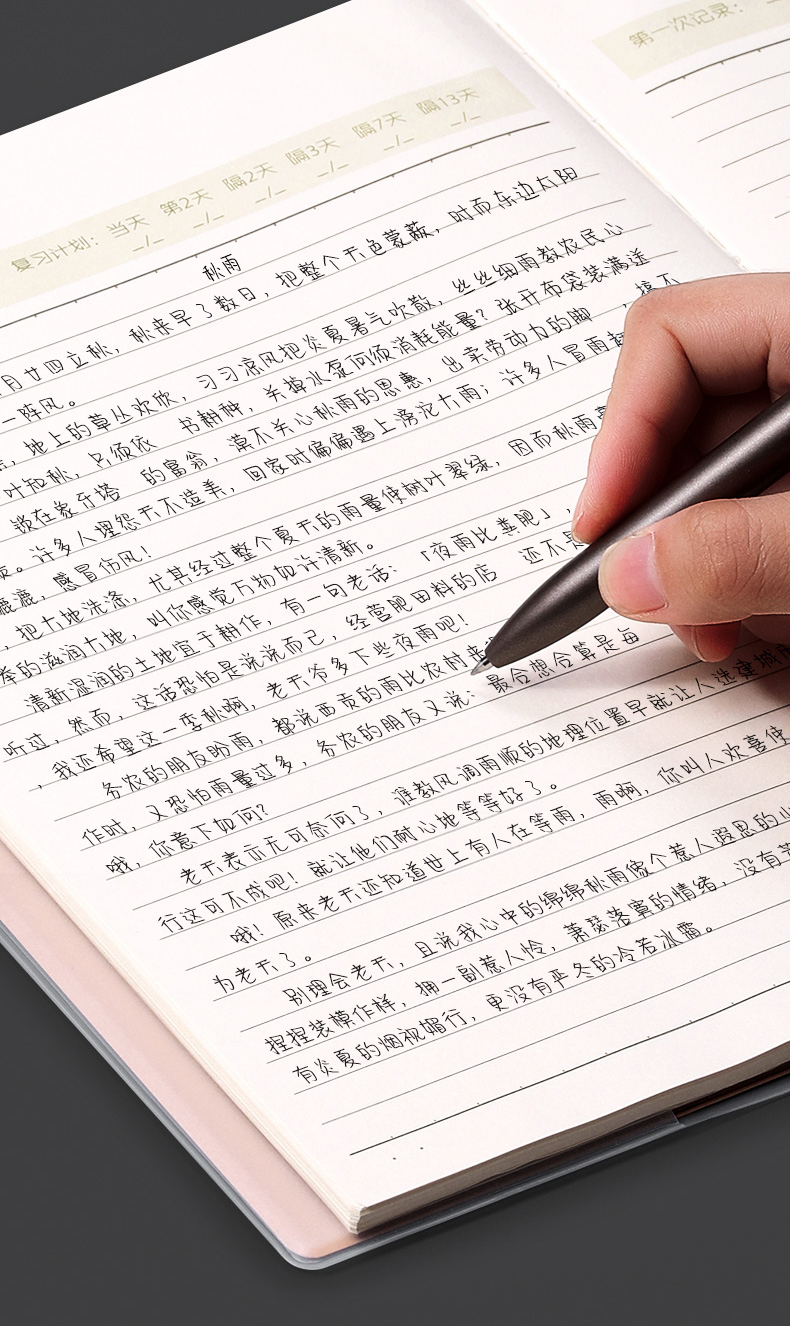 第一次记录:
复习计划: 当天 第2天 隔2天 隔3天 隔7天 隔13天
_/_ _/_ _/_ _/_ _/_ _/_
秋雨
月廿四立秋, 秋来早了数日, 把整个天色蒙蔽, 时而东边太阳
一阵风。
, 地上的草丛欢欣, 习习凉风把炎夏暑气吹散, 丝丝细雨教农民心
叶知秋, 只须依 书耕种, 关掉水泵何须消耗能量? 张开布袋装满送
锁在象牙塔 的富翁, 莫不关心秋雨的恩惠, 出卖劳动力的脚 ,
。许多人埋怨天不造美, 回家时偏偏遇上滂沱大雨; 许多人冒雨
漉漉, 感冒伤风!
, 把大地洗涤, 尤其经过整个夏天的雨量使树叶翠绿, 因而秋雨
的滋润大地, 叫你感觉万物如许清新。
清新湿润的土地宜于耕作, 有一句老话: 「夜雨比粪肥」,
听过, 然而, 这话恐怕是说说而已, 经营肥田料的店 还不是
, 我还希望这一季秋啊, 老天爷多下些夜雨吧!
务农的朋友盼雨, 都说西贡的雨比农村来
作时, 又恐怕雨量过多, 务农的朋友又说: 最合想合算是每
哦, 你意下如何?
老天表示无可奈何了, 谁教风调雨顺的地理位置早就让人选建城
行这可不成吧! 就让他们耐心地等等好了。
哦! 原来老天还知道世上有人在等雨, 雨啊, 你叫人欢喜使
为老天了。
别理会老天, 且说我心中的绵绵秋雨像个惹人遐思的
捏捏装模作样, 拥一副惹人怜, 萧瑟落寞的情绪, 没有
有炎夏的烟视媚行, 更没有严冬的冷若冰霜。